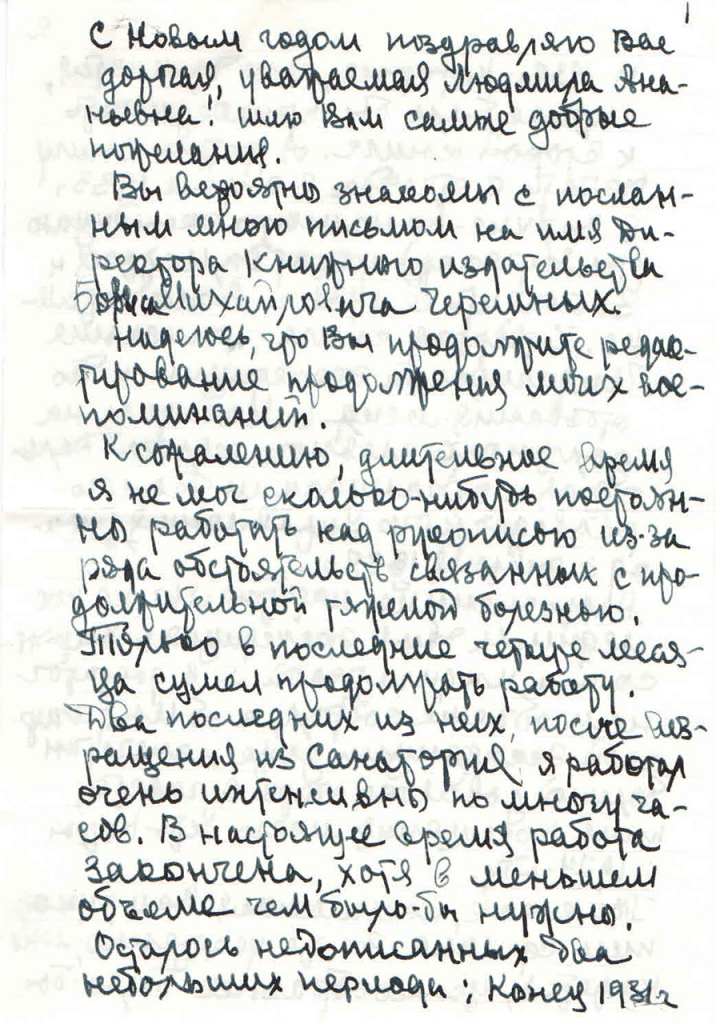 1
С Новым годом поздравляю Вас
дорогая, уважаемая Людмила Ана-
ньевна! шлю Вам самые добрые
пожелания.
Вы вероятно знакомы с послан-
ным мною письмом на имя Ди-
ректора Книжного издательства
Бориса Михайловича Черемных.
Надеюсь, что Вы продолжите редак-
тирование продолжения моих вос-
поминаний.
К сожалению, длительное время
я не мог сколько-нибудь постоян-
но работать над рукописью из-за
ряда обстоятельств связанных с про-
должительной тяжелой болезнью.
Только в последние четыре меся-
ца сумел продолжать работу.
Два последних из них, после воз-
ращения из санатория, я работал
очень интенсивно по многу ча-
сов. В настоящее время работа
закончена, хотя в меньшем
объеме чем было-бы нужно.
Осталось недописанных два
небольших периода: Конец 1931г